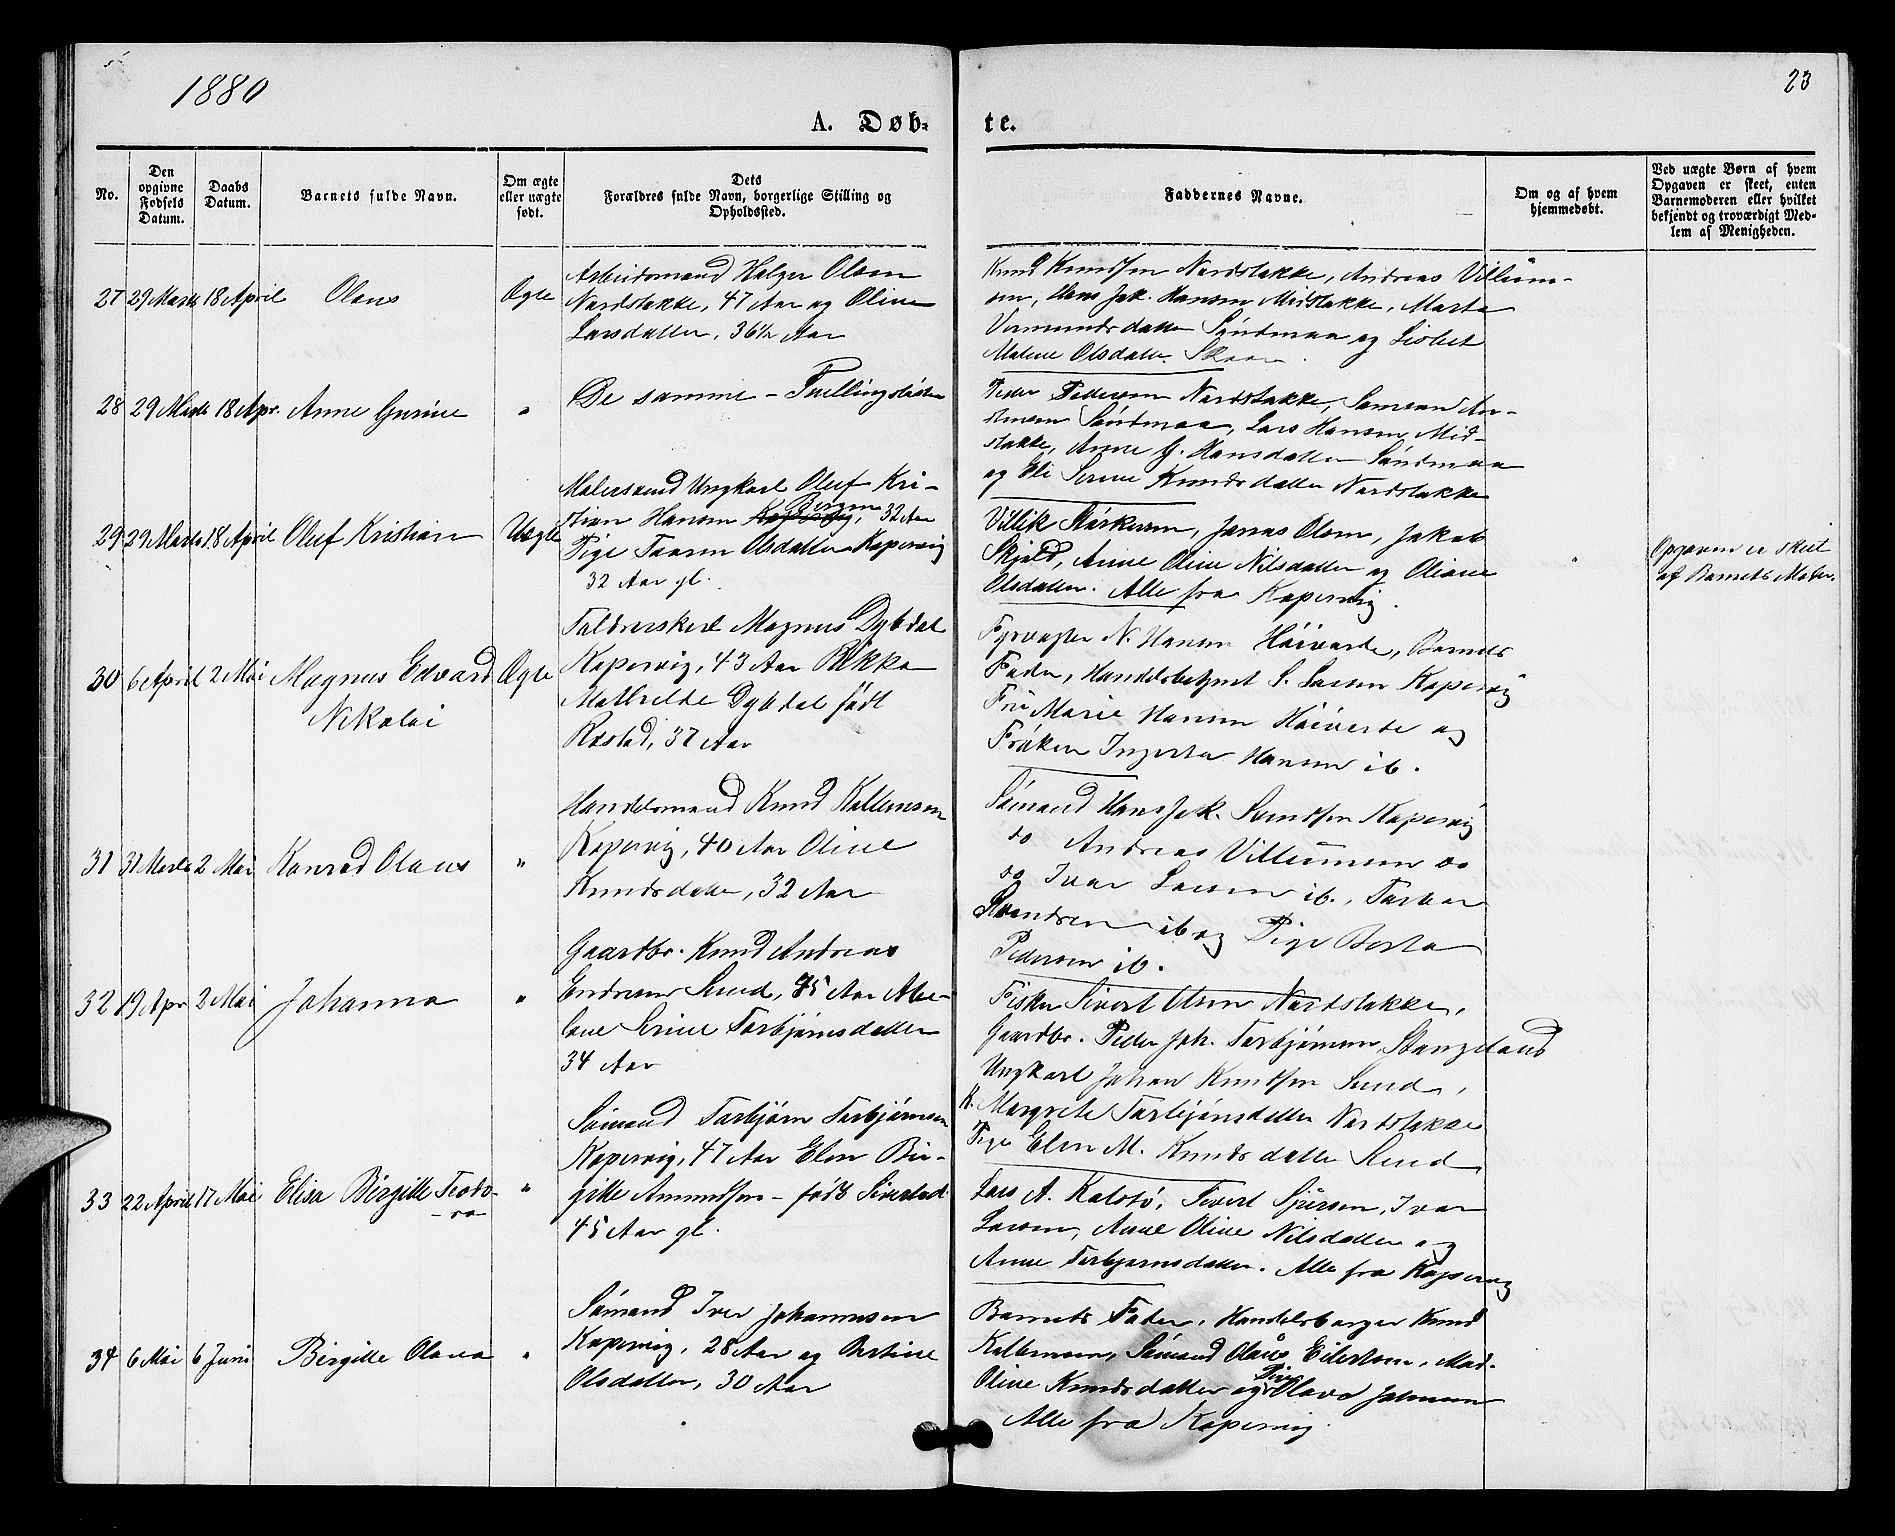 1880
23
A. Døb-
te.
No.
Den opgivne Fødsels Datum.
Daabs Datum.
Barnets fulde Navn.
Om ægte eller uægte født.
Dets
Forældres fulde Navn, borgerlige Stilling og Opholdssted.
Faddernes Navne.
Om og af hvem hjemmedøbt.
Ved uægte Børn af hvem Opgaven er skeet, enten Barnemoderen eller hvilket bekjendt og troværdigt Medlem af Menigheden.
27 29 Marts 18 April Olaus Ægte
Arbeidsmand Holger Olsen
Nordstokke, 47 Aar og Oline
Larsdatter, 36½ Aar
Knud Knudsen Nordstokke, Andreas Villum-
sen, Hans Jak. Hansen Midstokke, Marta
Vermundsdatter Søndmaa og Lisbet
Malene Olsdatter
28 29 Marts 18 Apr. Anne Gurine "
De samme – Tvillingsøster
Peder Pedersen Nordstokke, Samson
Søndmaa, Lars Hansen Mid-
stokke, Anne G. Hansdatter Søndmaa
og Eli Serine Knudsdatter Nordstokke
29 29 Marts 18 April Oluf Kristian Uægte
Malersvend Ungkarl Oluf Kri-
stian Hansen Kopervig Bergen, 32 Aar
Pige Olsdatter Kopervig
32 Aar gl.
Villik Størkersen, Jonas Olsen, Jakob
Skjold, Anne Oline Nilsdatter og Oliane
Olsdatter. Alle fra Kopervig.
Opgaven er skeet
af Barnets Moder.
30 6 April 2 Mai Magnus Edvard Ægte
Nikolai
Magnus Dybdal
Kopervig, 43 Aar Rikka
Mathilde Dybdal født
Rostad, 37 Aar
Fyrvogter N. Hansen Høivarde, Barnets
Fader, Handelsbetjent S. Larsen Kopervig
Fru Marie Hansen Høivarde og
Frøken Hansen ib.
31 31 Marts 2 Mai Konrad Olaus "
Handelsmand Knud Kallemsen
Kopervig, 40 Aar Oline
Knudsdatter, 32 Aar
Sømand Hans Jak. Knudsen Kopervig
do Andreas Villumsen do
do Ivar Larsen ib.,
ib og Pige Berta
Pedersen ib.
32 19 Apr 2 Mai Johanna "
Gaardbr. Knud Andreas
Endresen Sund, 45 Aar
Serine Torbjørnsdatter
34 Aar
Fisker Sivert Olsen Nordstokke,
Gaardbr. Peder Joh. Torbjørnsen Stangeland
Ungkarl Johan Knudsen Sund,
K. Margrete Torbjørnsdatter Nordstokke
Pige Elen M. Knudsdatter Sund
33 22 April 17 Mai Elisa Birgitte Teodo- "
ra
Sømand Torbjørn Torbjørnsen
Kopervig, 47 Aar Elen Bir-
gitte Amundsen – født
45 Aar gl.
Lars A. Kalstø, Sivert Sjursen, Ivar
Larsen, Anne Oline Nilsdatter og
Anne Torbjørnsdatter. Alle fra Kopervig
34 6 Mai 6 Juni Birgitte Olava "
Sømand Iver Johannesen
Kopervig, 28 Aar og Bertine
Olsdatter, 30 Aar
Barnets Fader, Handelsborger Knud
Kallemsen, Sømand Olaus Eilertsen, Mad.
Oline Knudsdatter og Pige Olava Johnsen
Alle fra Kopervig.